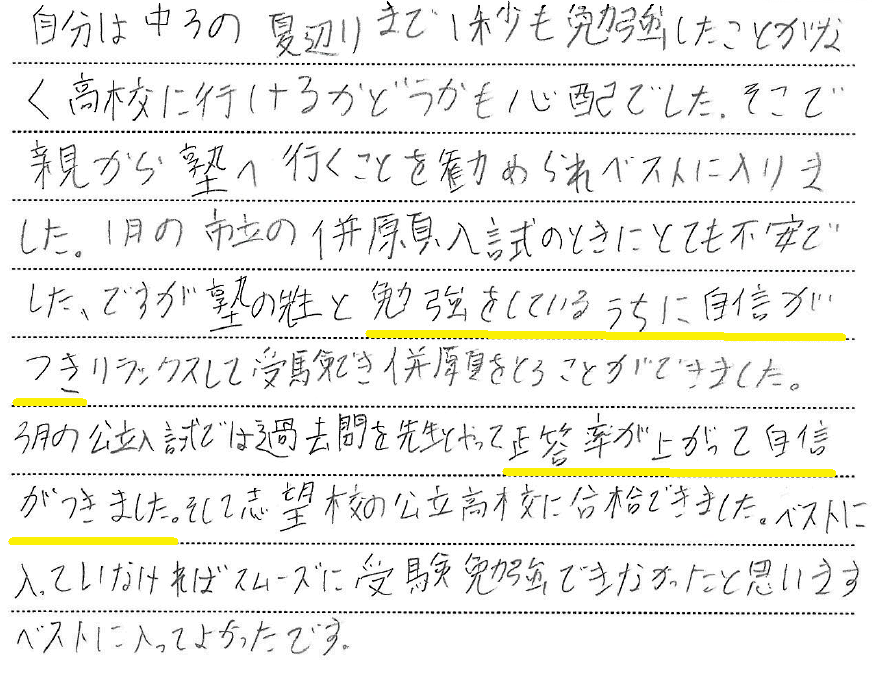 自分は中3の夏辺りまで1秒も勉強したことがな
く高校に行けるかどうかも心配でした。そこで
親から塾へ行くことを勧められベストに入りま
した。1月の市立の併願入試のときにとても不安で
した、ですが塾の先生と勉強をしているうちに自信が
つきリラックスして受験でき併願をとることができました。
3月の公立入試では過去問を先生とやって正答率が上がって自信
がつきました。そして志望校の公立高校に合格できました。ベストに
入っていなければスムーズに受験勉強できなかったと思います
ベストに入ってよかったです。